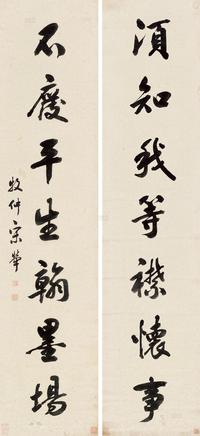 須知我等襟懷事
不廢平生翰墨場
牧仲宋犖